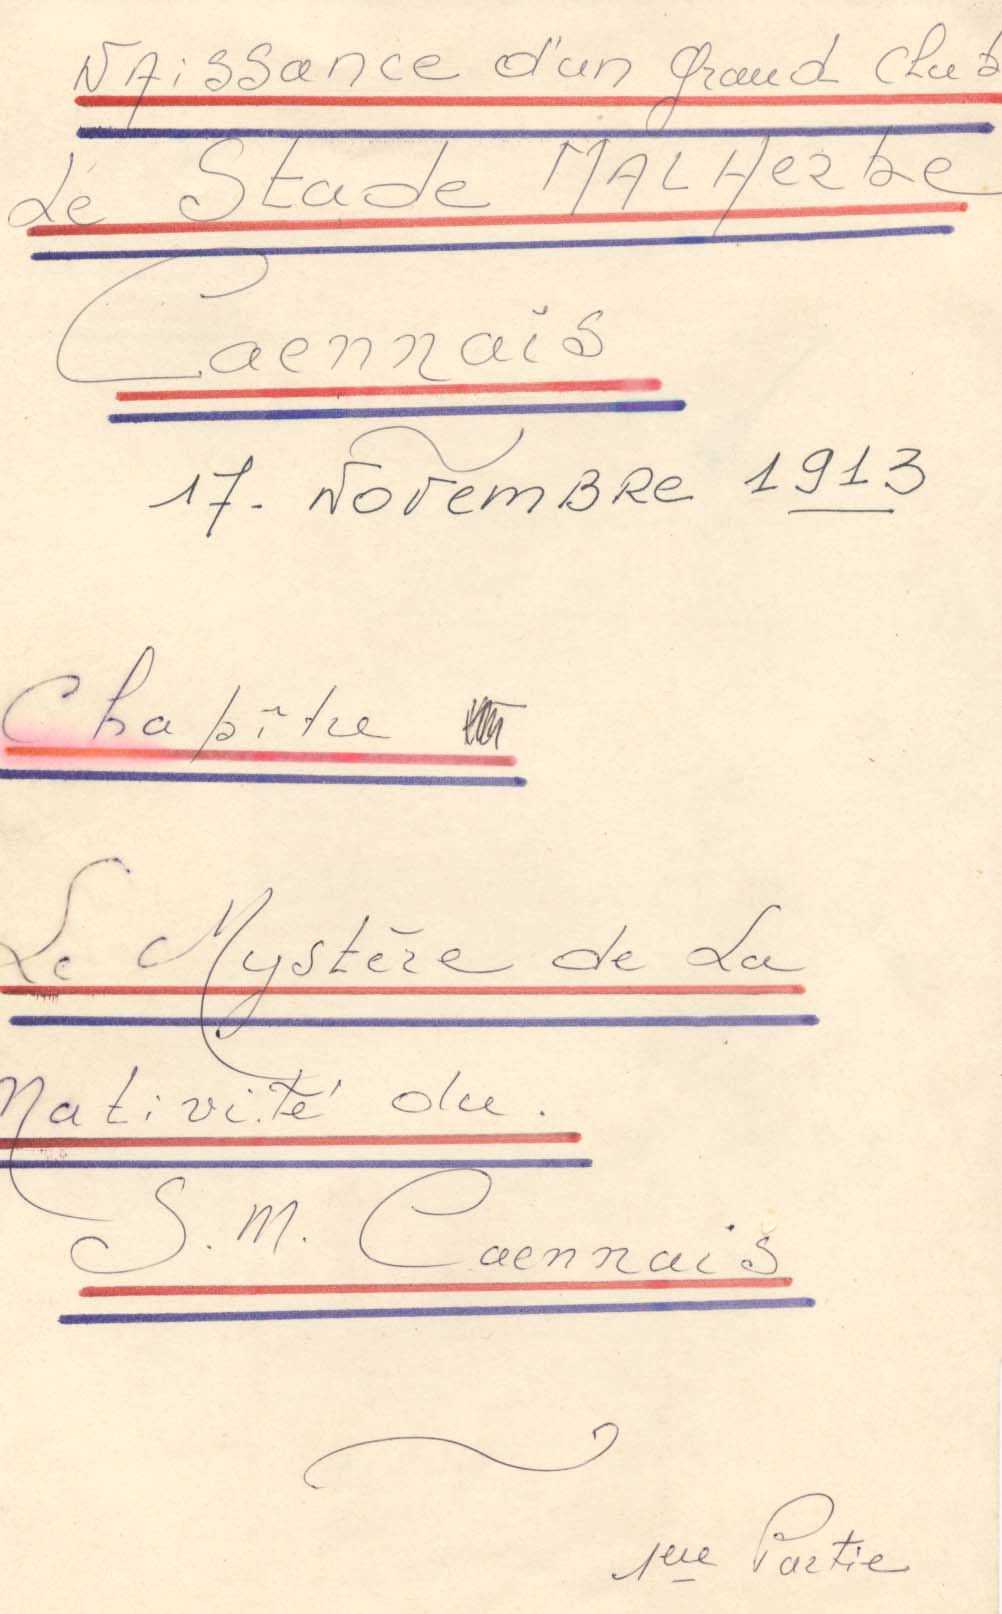 NAissance d'un grand Club
Le Stade MALHerbe
Caennais
17. Novembre 1913
Chapître
Le Mystère de La
Nativité du.
S.M. Caennais
1ere Partie